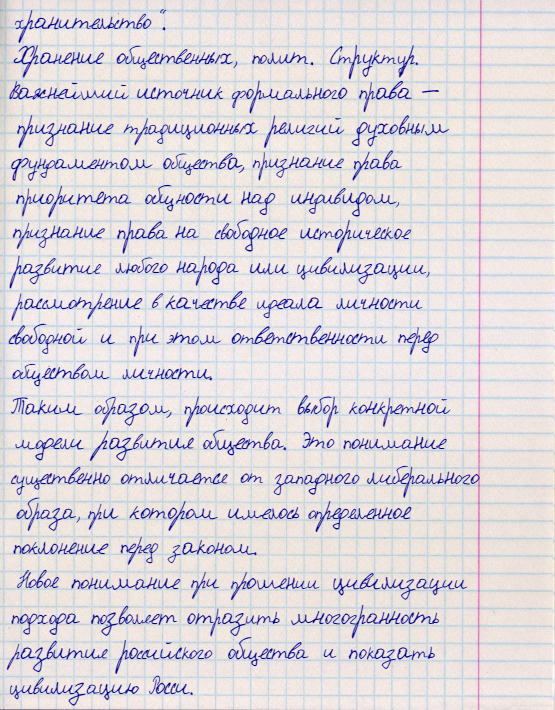 хранительство".
Хранение общественных, полит. Структур.
Важнейший источник формального права –
признание традиционных религий духовным
фундаментом общества, признание права
приоритета общности над индивидом,
признание права на свободное историческое
развитие любого народа или цивилизации,
рассмотрение в качестве идеала личности
свободной и при этом ответственности перед
обществом личности.
Таким образом, происходит выбор конкретной
модели развития общества. Это понимание
существенно отличается от западного либерального
образа, при котором имелось определенное
поклонение перед законом.
Новое понимание при прошении цивилизации
подхода позволяет отразить многогранность
развития российского общества и показать
цивилизацию Росси.